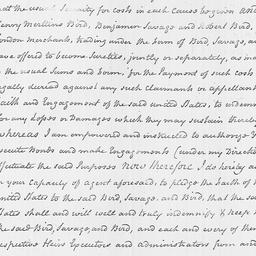 at the usual Security for Costs in each Cause hogwin and
Henry Merttins Bird, Benjamin Savage and Robert Bird,
London merchants, trading under the term of Bird, Savage, an
ave offered to become Sureties, jointly or separately, as ma
the usual Sums and Form, for the Payment of such Costs
egally decreed against any such claimants or appellant
aith and Engagement of the said United States, to indem
for any Losses or Damages which they may sustain thereby
whereas I am empowered and instructed to authorize
xecute Bonds and make Engagements (under my Directio
ffectuate the said Purposes Now therefore I do hereby a
n your Capacity of Agent aforesaid, to pledge the Faith of t
nited States to the said Bird, Savage, and Bird, that the sa
tates shall and will well and truly indemnify & keep h
he said Bird, Savage, and Bird, and each and every of them
espective Heirs Executors and administrators from and